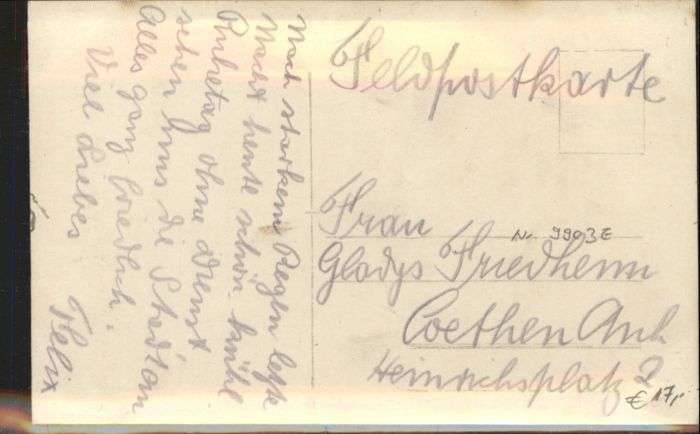 Feldpostkarte
Frau
Gladys Friedheim
Coethen Anh
Heinrichsplatz 2
Nr. 9903E
€ 17,-
Nach starkem Regen letzte
Nacht heute schön kühl
Ruhetag ohne Dienst
sehen uns die Stadt an
Alles ganz friedlich.
Viel Liebes
Felix